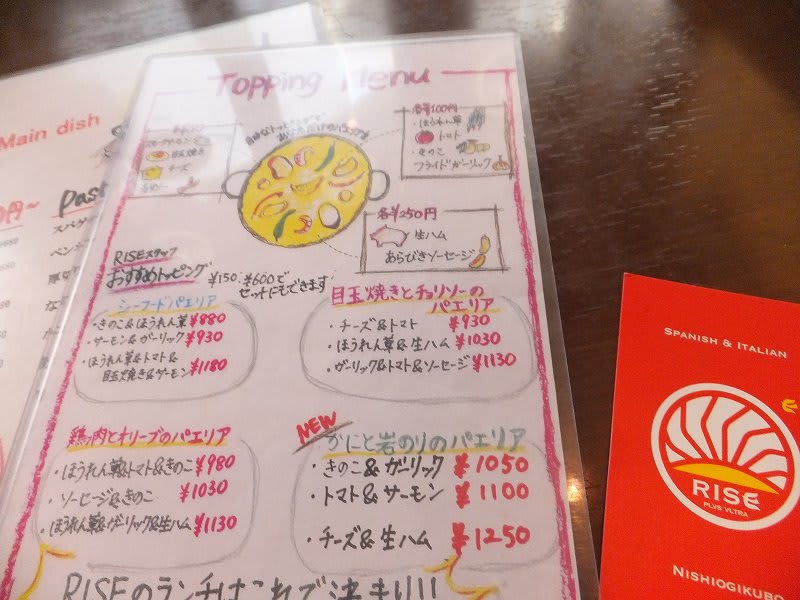 Main dish
Past
スパゲ
Topping Menu
各¥100円
・ほうれん草
トマト
・きのこ
フライドガーリック
目玉焼き
チーズ
各¥250円
生ハム
あらびきソーセージ
RISEスタッフ
おすすめトッピング
¥150、¥600で
セットにもできます
シーフードパエリア
・きのこ&ほうれん草 ¥880
・サーモン&ガーリック ¥930
・ほうれん草&トマト&
目玉焼き&サーモン ¥1180
目玉焼きとチョリソーの
パエリア
・チーズ&トマト ¥930
・ほうれん草&生ハム ¥1030
・ガーリック&トマト&ソーセージ ¥1130
鶏肉とオリーブのパエリア
・ほうれん草&トマト&きのこ ¥980
・ソーセージ&きのこ ¥1030
・ほうれん草&ガーリック&生ハム ¥1130
NEW
かにと岩のりのパエリア
・きのこ&ガーリック ¥1050
・トマト&サーモン ¥1100
・チーズ&生ハム ¥1250
RISEのランチはこれで決まり!!
SPANISH & ITALIAN
RISE
PLVS VLTRA
NISHIOGIKUBO